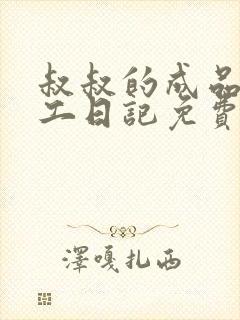 叔叔的成品
工日記免費
澤嘎扎西